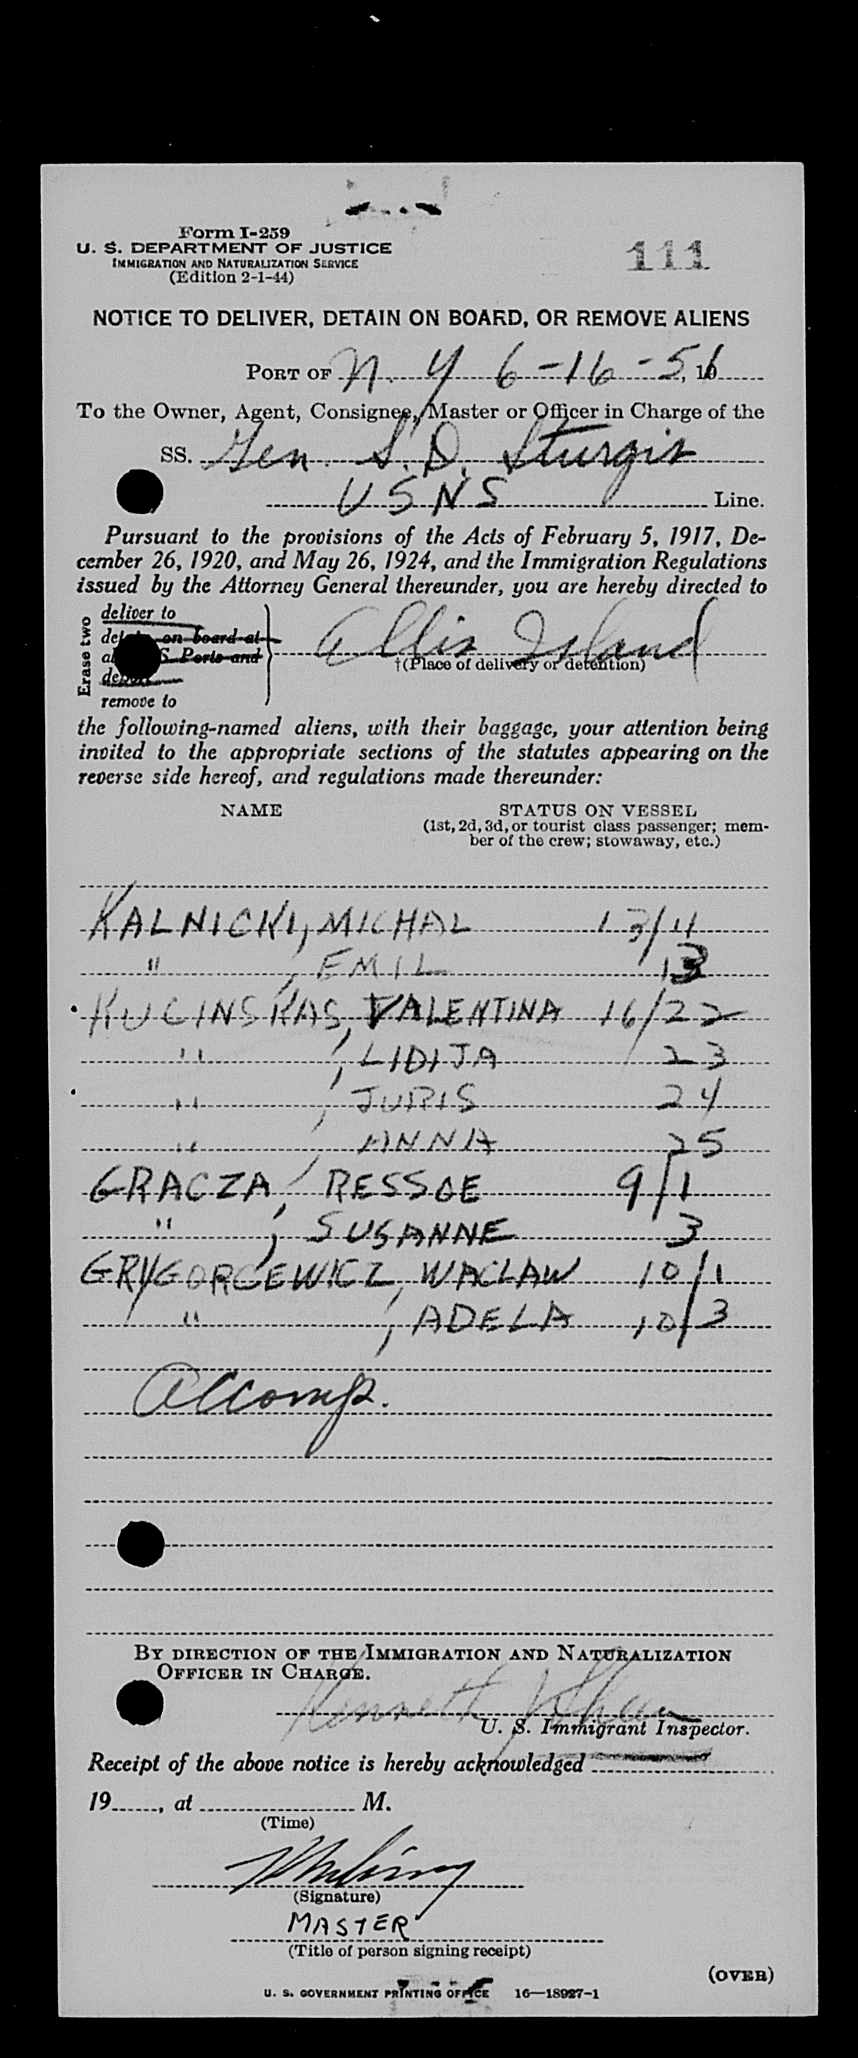 Form I-259
U. S. DEPARTMENT OF JUSTICE
IMMIGRATION AND NATURALIZATION SERVICE
(Edition 2-1-44)
111
NOTICE TO DELIVER, DETAIN ON BOARD, OR REMOVE ALIENS
PORT OF N. Y 6-16-51, 19
To the Owner, Agent, Consignee, Master or Officer in Charge of the
SS. Gen. S. D. Sturgis
USNS Line.
Pursuant to the provisions of the Acts of February 5, 1917, De-
cember 26, 1920, and May 26, 1924, and the Immigration Regulations
issued by the Attorney General thereunder, you are hereby directed to
Erase two
deliver to
on board at
S. Ports and
remove to
Ellis Island
†(Place of delivery or detention)
the following-named aliens, with their baggage, your attention being
invited to the appropriate sections of the statutes appearing on the
reverse side hereof, and regulations made thereunder:
NAME STATUS ON VESSEL
(1st, 2d, 3d, or tourist class passenger; mem-
ber of the crew; stowaway, etc.)
KALNICKI, MICHAL 13/11
" , EMIL 13
KUCINSKAS, VALENTINA 16/22
" , LIDIJA 23
" , JURIS 24
" , ANNA 25
GRACZA, RESSOE 9/1
" , SUSANNE 3
GRYGORCEWICZ, WACLAW 10/1
" , ADELA 10/3
Accomp.
BY DIRECTION OF THE IMMIGRATION AND NATURALIZATION
OFFICER IN CHARGE.
Kenneth J
U. S. Immigrant Inspector.
Receipt of the above notice is hereby acknowledged
19 , at M.
(Time)
(Signature)
MASTER
(Title of person signing receipt)
(OVER)
U. S. GOVERNMENT PRINTING OFFICE 16—18927-1